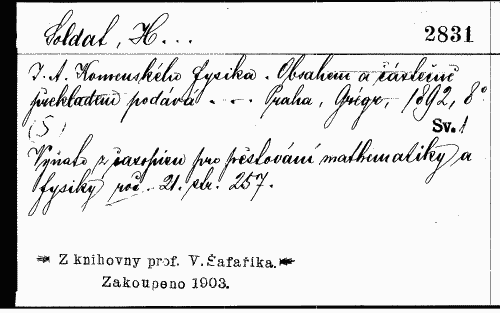 Soldat, H...
2831
J. A. Komenského fysika. Obsahem a částečně
překladem podává ... Praha, Grégr, 1892, 8°
(5)
Sv. 1
Vyňato z časopisu pro pěstování mathematiky a
fysiky roč. 21. str. 257.
Z knihovny prof. V. Šafaříka.
Zakoupeno 1903.